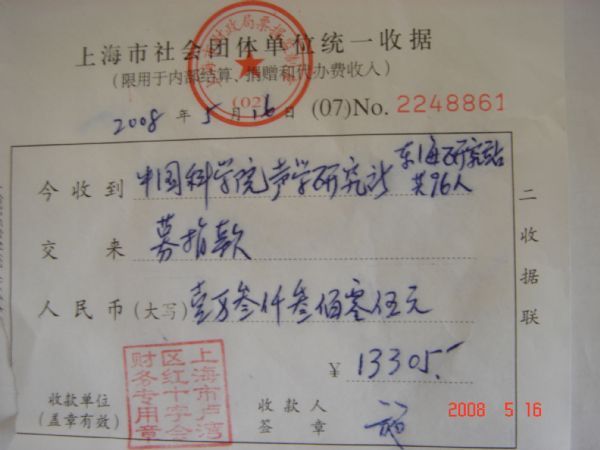 上海市社会团体单位统一收据
(限用于内部结算、捐赠和代办费收入)
2008 年 5 月 16 日 (07)No. 2248861
今收到 中国科学院声学研究所 东海研究站
共96人
交来 募捐款
人民币(大写) 壹万叁仟叁佰零伍元
¥ 13305.-
收款单位
(盖章有效)
上海市卢湾
区红十字会
财务专用章
收款人
签章
二收据联
(02)
2008 5 16